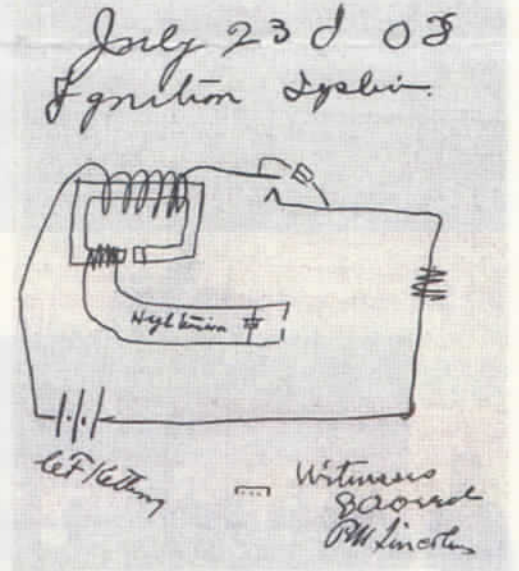 July 23d 08
Ignition System.
High tension
CF Kettering
Witnesses
RM Lincoln